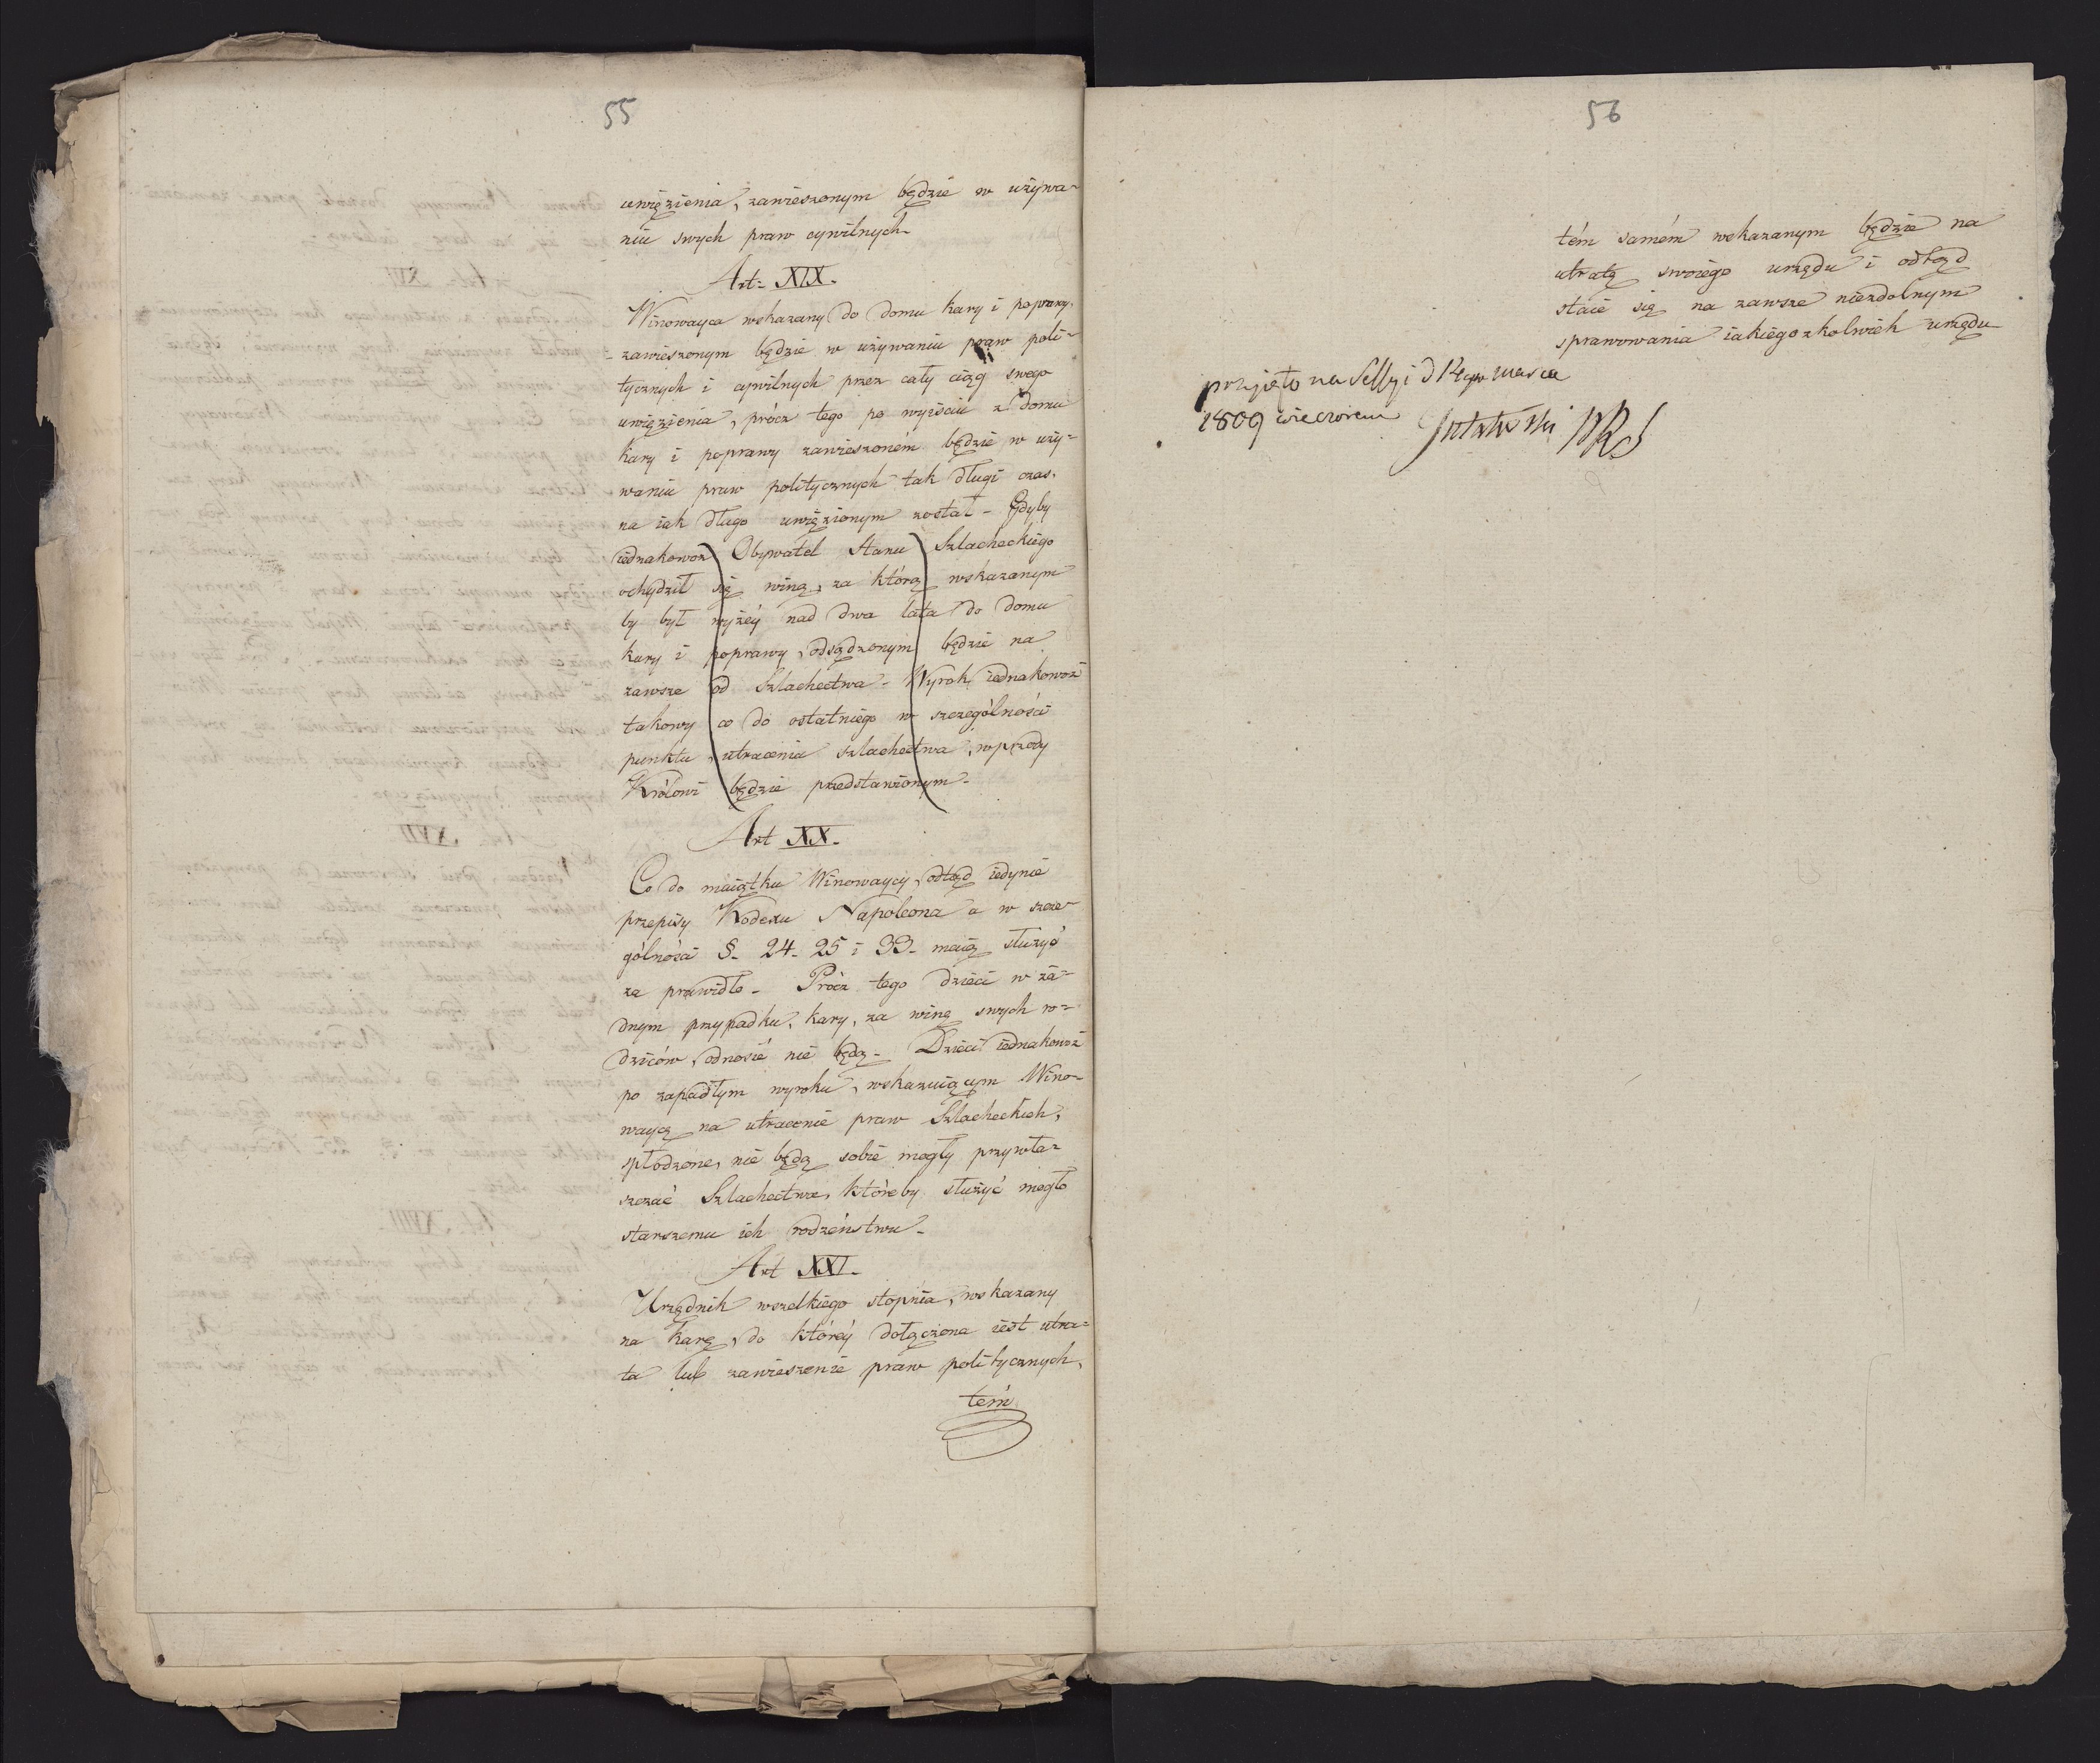 55
uwięzienia, zawieszonym będzie w używa-
niu swych praw cywilnych-
Art: XIX.
Winowayca wskazany do domu kary i poprawy,
zawieszonym będzie w używaniu praw poli-
tycznych i cywilnych przez cały ciąg swego
uwięzienia, prócz tego po wyiściu z domu
kary i poprawy zawieszoném będzie w uży-
waniu praw politycznych tak długi czas,
na iak długo uwięzionym został - Gdyby
iednakowoż Obywatel Stanu Szlacheckiego
ochydził się winą, za którą wskazanym
by był wyżéy nad dwa lata do domu
kary i poprawy, odsądzonym będzie na
zawsze od Szlachectwa - Wyrok iednakowoż
takowy co do ostatniego w szczególności
punktu, utracenia szlachectwa, wprzódy
Królowi będzie przedstawionym-
Art XX.
Co do maiątku Winowaycy, odtąd iedynie
przepisy Kodexu Napoleona a w szcze-
gólności §. 24. 25 i 33. maią służyć
za prawidło - Prócz tego dzieci w ża-
dnym przypadku, kary, za winę swych ro-
dziców, odnosić nie będą - Dzieci iednakowoż
po zapadłym wyroku, wskazuiącym Wino-
waycę na utracenie praw Szlacheckich,
spłodzone, nie będą sobie mogły przywła-
szczać Szlachectwa, któreby służyć mogło
starszemu ich rodzeństwu-
Art XXI.
Urzędnik wszelkiego stopnia, wskazany
na karę, do któréy dołączona iest utra-
ta lub zawieszenie praw politycznych,
tém
56
tém samém wskazanym będzie na
utratę swoiego urzędu i odtąd
staie się na zawsze niezdolnym
sprawowania iakiegożkolwiek urzędu-
przyjęto na Sessyi d 14 marca
1809 wieczorem